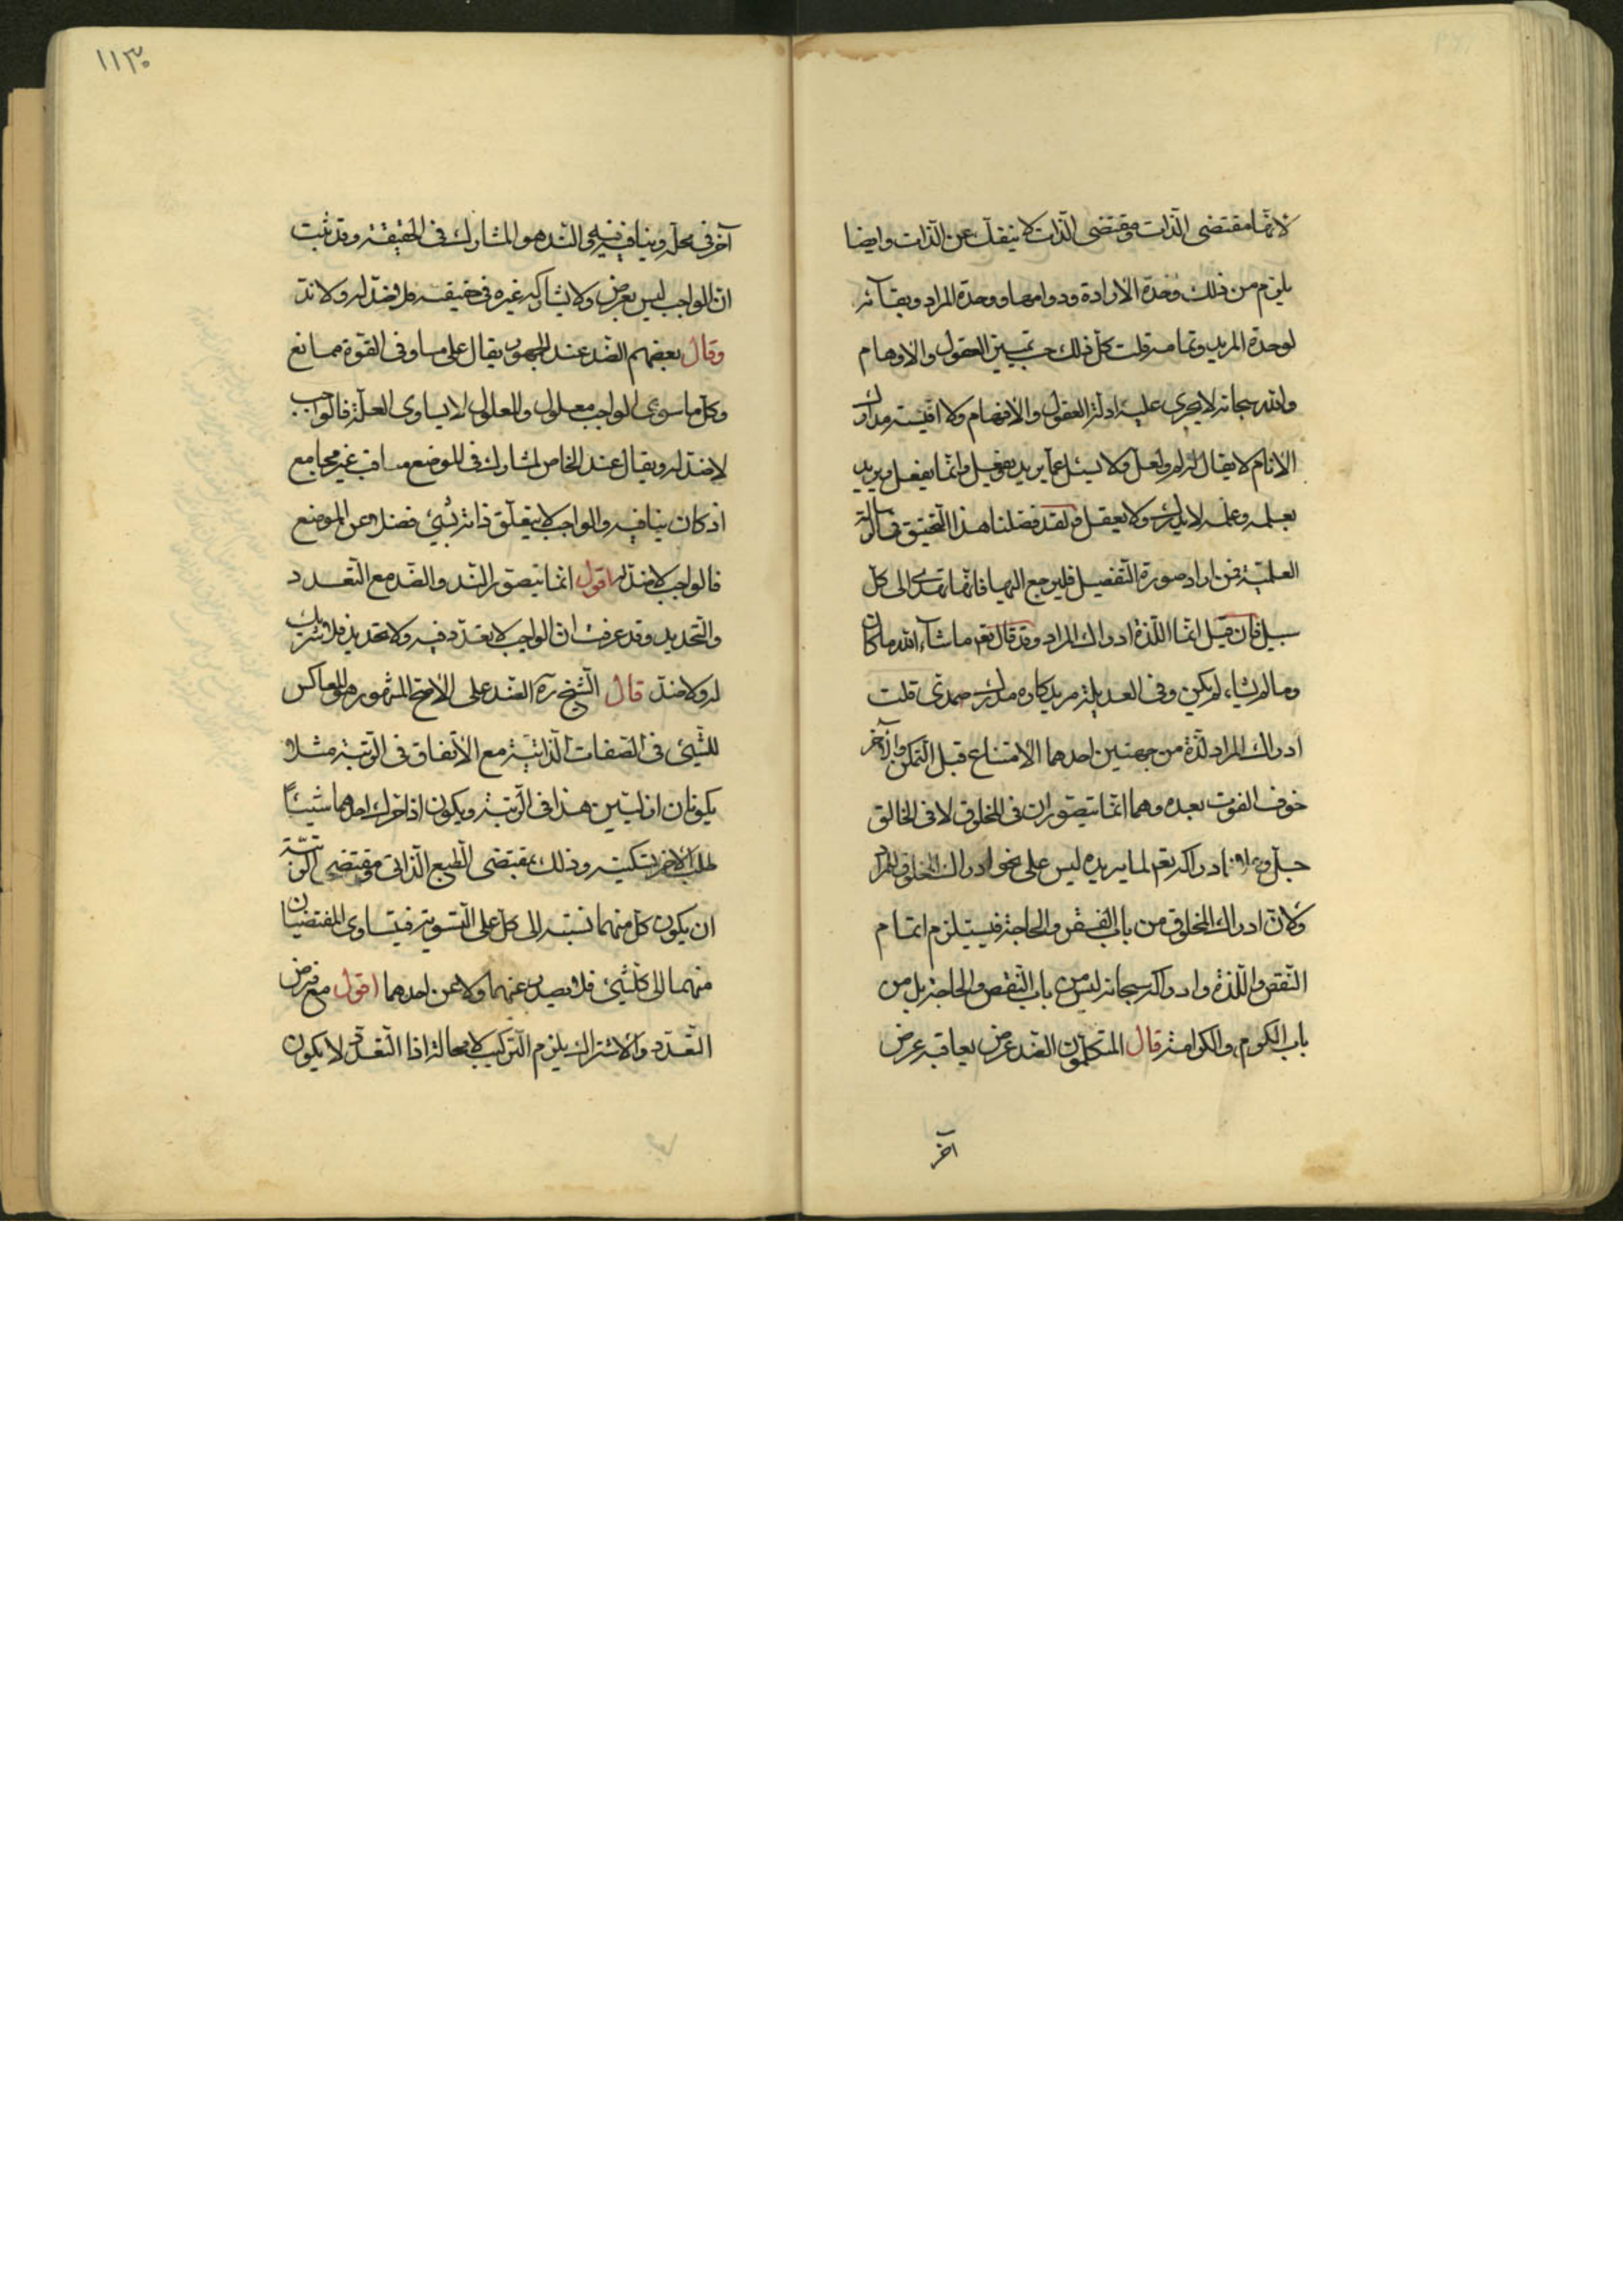 لانها مقتضى الذات ومقتضى الذات لا ينفك عن الذات وايضا
يلزم من ذلك وحدة الارادة ودوامها ووحدة المراد وبقآئه
لوحدة المريد وتمامه قلت كل ذلك حسب العقول والاوهام
والله سبحانه لا يجرى عليه ادلة العقول والافهام ولا اقيسة مدارك
الانام لا يقال له لم ولعل ولا يسئل عما يريد ويفعل وانما يفعل ويريد
بعلمه وعلمه لا يدرك ولا يعقل ولقد فصلنا هذا التحقيق فى
العلمية فمن اراد صورة التفصيل فليرجع اليها فانها تهدى الى كل
سبيل فان قيل انما اللذة ادراك المراد وقد قال تعم ما شآء الله ما كان
وما لم يشاء لم يكن وفى العديلة مريد كاره مدرك صمدى قلت
ادراك المراد لذة من جهتين احدهما الامتناع قبل التمكن والآخر
خوف الفوت بعده وهما انما يتصوران فى المخلوق لا فى الخالق
جل وعلا فادراكه تعم لما يريده ليس على نحو ادراك المخلوق المراد
ولان ادراك المخلوق من باب الفقر والحاجة فيستلزم اتمام
النقص واللذة وادراكه سبحانه ليس من باب النقص والحاجة بل من
باب الكرم والكرامة قال المتكلمون الضد عرض يعاقبه عرض
آخر
١١٣٠
آخر فى محله وينافيه فيه والند هو المشارك فى الحقيقة وقد ثبت
ان الواجب ليس بعرض ولا يشاركه غيره فى حقيقته فلا ضد له ولا ند
وقال بعضهم الضد عند الجمهور يقال على مساو فى القوة ممانع
وكل ما سوى الواجب معلول والمعلول لا يساوى العلة فالواجب
لا ضد له ويقال عند الخاص لمشارك فى الموضع معاقب غير مجامع
اذ كان ينافيه والواجب لا يتعلق ذاته بشئ فضلا عن الموضع
فالواجب لا ضد له اقول انما يتصور الند والضد مع التعدد
والتحديد وقد عرفت ان الواجب لا تعدد فيه ولا تحديد فلا شريك
له ولا ضد قال الشيخ ره الضد على الاصح المشهور هو المعاكس
للشئ فى الصفات الذاتية مع الاتفاق فى الرتبة مثلا
يكونان ازليين هذا فى الرتبة ويكون اذا حرك احدهما شيئاً
طلب الآخر تسكينه وذلك بمقتضى الطبع الذاتى ومقتضى الرتبة
ان يكون كل منهما نسبته الى كل على التسوية فيتساوى المقتضيان
منهما الى كل شئ فلا يصدر عنهما ولا عن احدهما اقول مع فرض
التعدد والاشتراك يلزم التركيب لا محالة اذا التعدد لا يكون